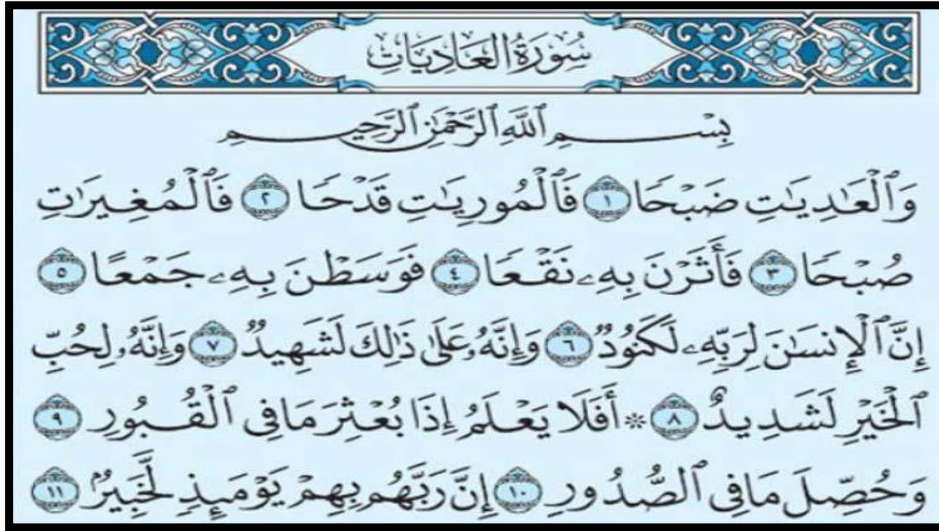 سُورَةُ العَادِيَاتِ
بِسْمِ ٱللَّهِ ٱلرَّحْمَٰنِ ٱلرَّحِيمِ
وَٱلْعَٰدِيَٰتِ ضَبْحًا ١ فَٱلْمُورِيَٰتِ قَدْحًا ٢ فَٱلْمُغِيرَٰتِ
صُبْحًا ٣ فَأَثَرْنَ بِهِۦ نَقْعًا ٤ فَوَسَطْنَ بِهِۦ جَمْعًا ٥
إِنَّ ٱلْإِنسَٰنَ لِرَبِّهِۦ لَكَنُودٌ ٦ وَإِنَّهُۥ عَلَىٰ ذَٰلِكَ لَشَهِيدٌ ٧ وَإِنَّهُۥ لِحُبِّ
ٱلْخَيْرِ لَشَدِيدٌ ٨ ۞ أَفَلَا يَعْلَمُ إِذَا بُعْثِرَ مَا فِي ٱلْقُبُورِ ٩
وَحُصِّلَ مَا فِي ٱلصُّدُورِ ١٠ إِنَّ رَبَّهُم بِهِمْ يَوْمَئِذٍ لَّخَبِيرٌۢ ١١